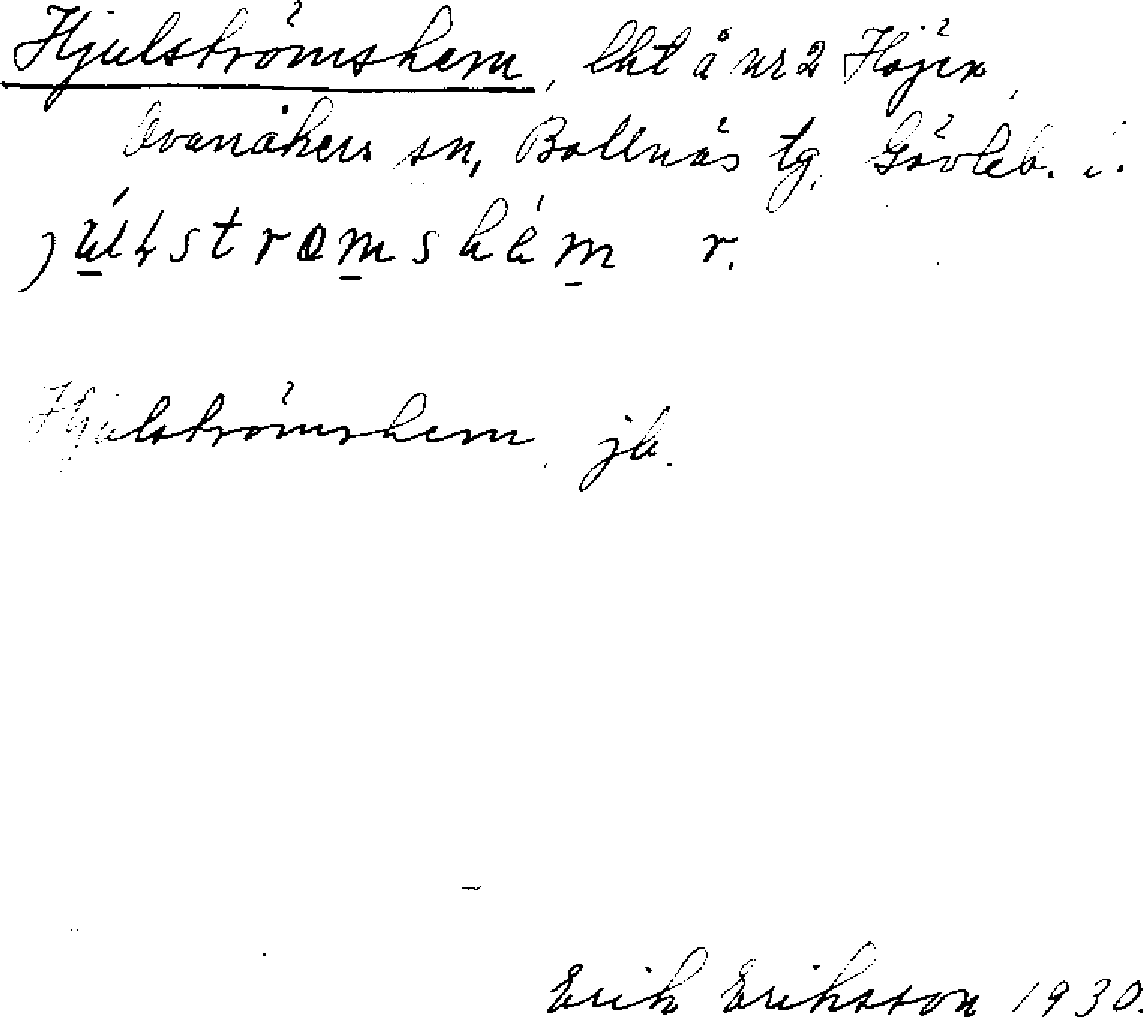 Hjulströmshem, lht å nr 2 Höjen,
Ovanåkers sn, Bollnäs tg, Gävleb. l.
r.
Hjulströmshem, jb.
Erik Eriksson 1930.